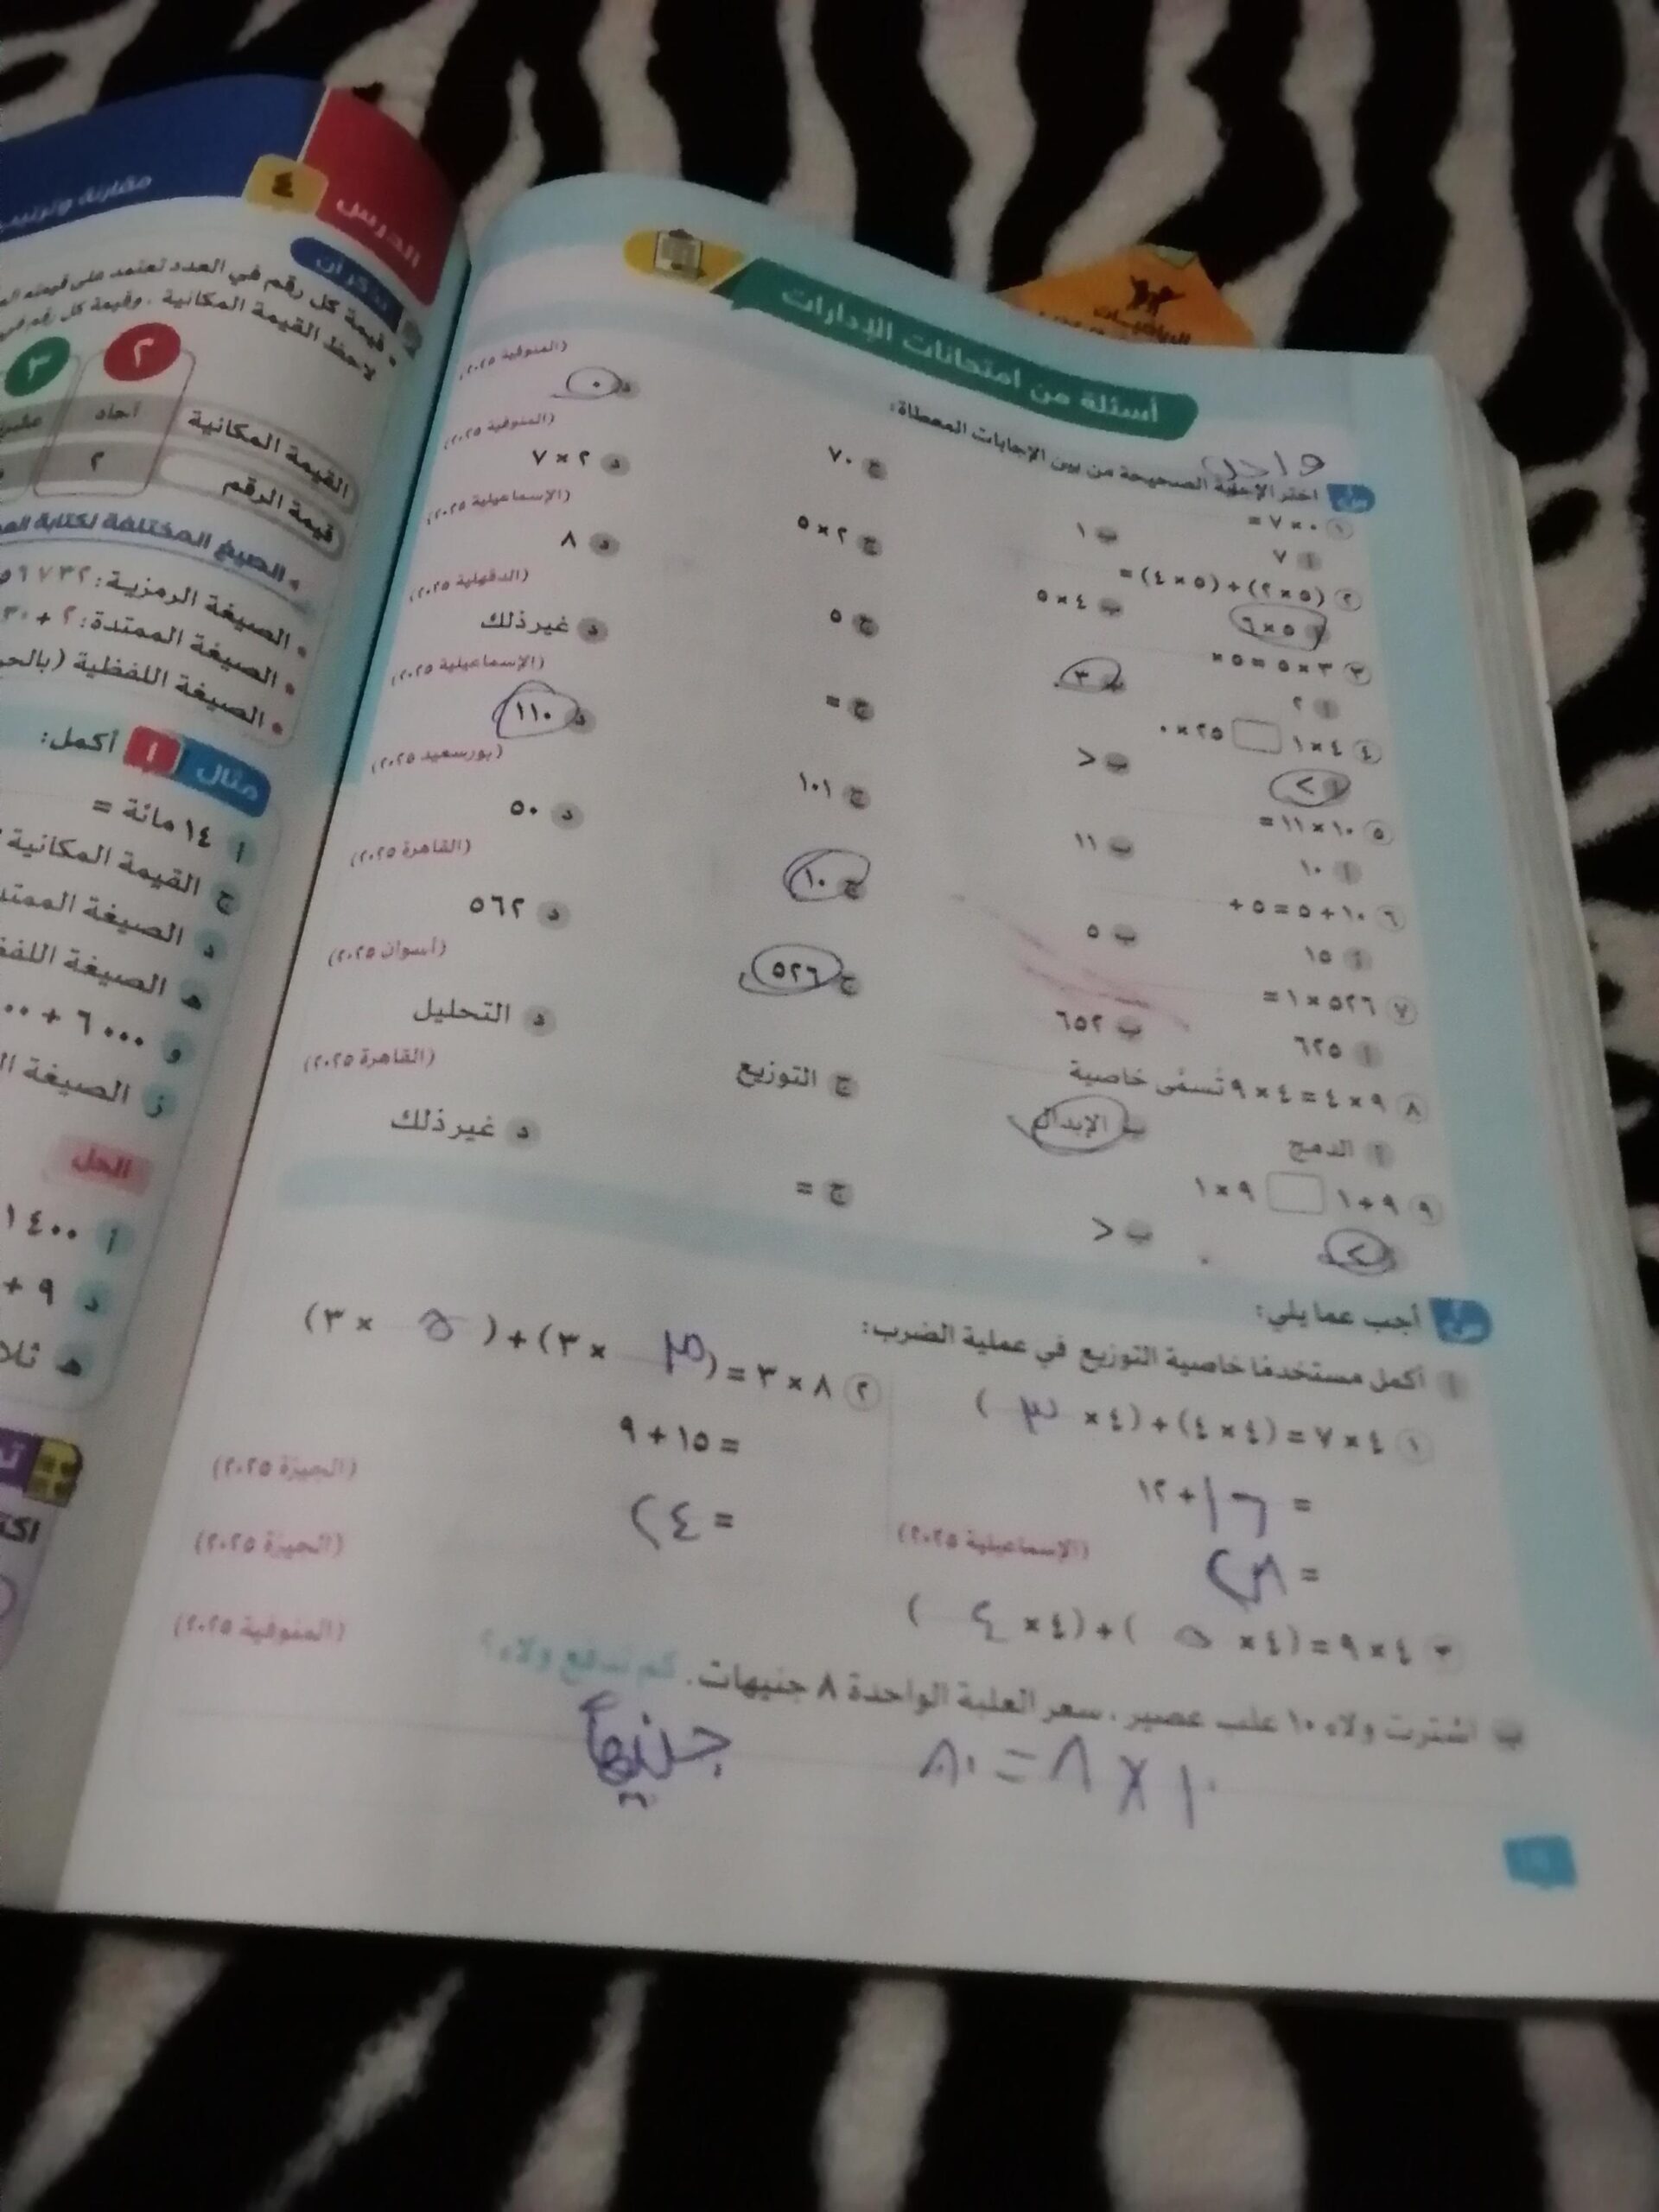 أسئلة من امتحانات الإدارات
واجب
اختر الإجابة الصحيحة من بين الإجابات المعطاة:
١ ٠ × ٧ = (المنوفية ٢٠٢٥)
أ ٧ ب ١ ج ٧٠ د ٠
٢ (٥ × ٢) + (٥ × ٤) = (المنوفية ٢٠٢٥)
أ ٥ × ٦ ب ٤ × ٥ ج ٢ × ٥ د ٢ × ٧
٣ ٣ × ٥ = ٥ × (الإسماعيلية ٢٠٢٥)
أ ٢ ب ٣ ج ٥ د ٨
٤ ٤ × ١ ٢٥ × ٠ (الدقهلية ٢٠٢٥)
أ > ب < ج = د غير ذلك
٥ ١٠ × ١١ = (الإسماعيلية ٢٠٢٥)
أ ١٠ ب ١١ ج ١٠١ د ١١٠
٦ ١٠ + ٥ = ٥ + (بورسعيد ٢٠٢٥)
أ ١٥ ب ٥ ج ١٠ د ٥٠
٧ ٥٢٦ × ١ = (القاهرة ٢٠٢٥)
أ ٦٢٥ ب ٦٥٢ ج ٥٢٦ د ٥٦٢
٨ ٩ × ٤ = ٤ × ٩ تُسمَّى خاصية (أسوان ٢٠٢٥)
أ الدمج ب الإبدال ج التوزيع د التحليل
٩ ٩ + ١ ٩ × ١ (القاهرة ٢٠٢٥)
> ب < ج = د غير ذلك
أجب عما يلي:
أ أكمل مستخدمًا خاصية التوزيع في عملية الضرب:
١ ٤ × ٧ = (٤ × ٤) + (٤ × ٣ )
= ١٦ + ١٢
= ٢٨ (الإسماعيلية ٢٠٢٥)
٢ ٨ × ٣ = ( ٣ × ٣) + ( ٥ × ٣)
= ١٥ + ٩
= ٢٤ (الجيزة ٢٠٢٥)
٣ ٤ × ٩ = (٤ × ٥ ) + (٤ × ٤ ) (الجيزة ٢٠٢٥)
ب اشترت ولاء ١٠ علب عصير، سعر العلبة الواحدة ٨ جنيهات. كم تدفع ولاء؟ (المنوفية ٢٠٢٥)
١٠ × ٨ = ٨٠ جنيهاً
الدرس
٤
مقارنة وترتيب
تذكر أن
قيمة كل رقم في العدد تعتمد على قيمته
لاحظ القيمة المكانية، وقيمة كل رقم في
٢ ٣
القيمة المكانية آحاد
قيمة الرقم ٢
الصيغ المختلفة لكتابة
الصيغة الرمزية:
الصيغة الممتدة: ٢ + ٣٠
الصيغة اللفظية
مثال ١ أكمل:
أ ١٤ مائة =
ج القيمة المكانية
د الصيغة
هـ الصيغة
و ٦٠٠٠ +
ز الصيغة
الحل
أ ١٤٠٠
د ٩ +
هـ